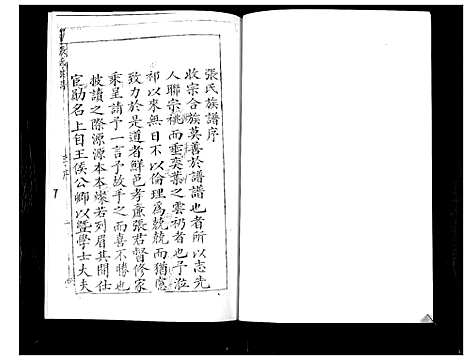 張氏族譜序
收宗合族莫善於譜譜也者所以志先
人聯宗祧而垂奕葉之雲礽者也予涖
祁以來無日不以倫理為兢兢而猶虛
致力於是道者鮮邑孝亷張君督修家
乘呈請予一言予故手之而喜不勝也
披讀之際源源本本燦若列眉其間仕
宦勛名上自王侯公卿以暨學士大夫